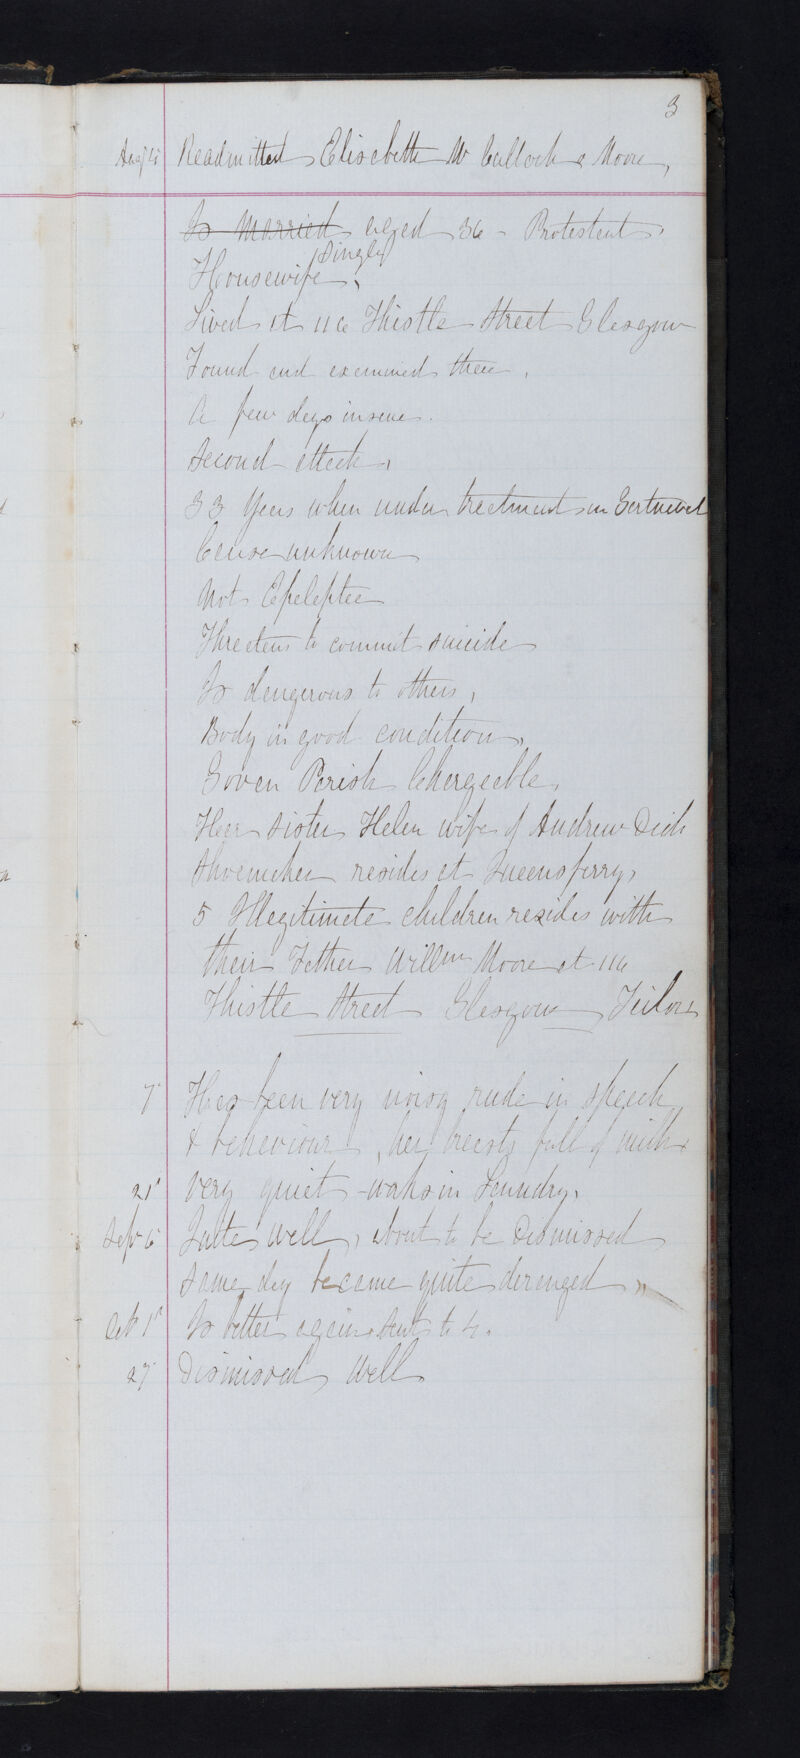 3
Readmitted Elisabeth McCulloch or Moore,
Is Married aged 36 - Protestant,
Single
Housewife,
Lived at 116 Thistle Street Glasgow
Found and examined there,
A few days insane.
Second attack,
33 Years when under treatment in Gartnavel
Cause unknown
Not Epeleptic
Threatens to commit suicide
Is dangerous to others,
Body in good condition,
Govan Parish Chargeable,
Her sister Helen wife of Andrew Dick
Shoemaker resides at Queensferry,
5 Illegitimate children resides with
their Father Willm Moore at 116
Thistle Street Glasgow Tailor
7 Has been very noisy rude in speech
& behaviour, her breasts full of milk
21 very quiet - works in Laundry,
Sep 6 Quite well, about to be Dismissed
same day became quite deranged
Oct 1 Is better again, sent to 4.
27 Dismissed Well